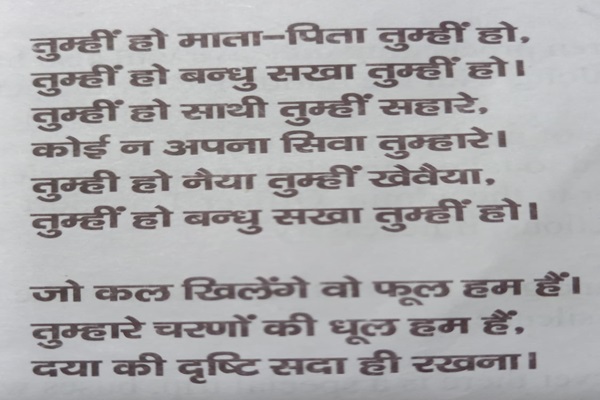 तुम्हीं हो माता-पिता तुम्हीं हो,
तुम्हीं हो बन्धु सखा तुम्हीं हो।
तुम्हीं हो साथी तुम्हीं सहारे,
कोई न अपना सिवा तुम्हारे।
तुम्ही हो नैया तुम्हीं खेवैया,
तुम्हीं हो बन्धु सखा तुम्हीं हो।
जो कल खिलेंगे वो फूल हम हैं।
तुम्हारे चरणों की धूल हम हैं,
दया की दृष्टि सदा ही रखना।